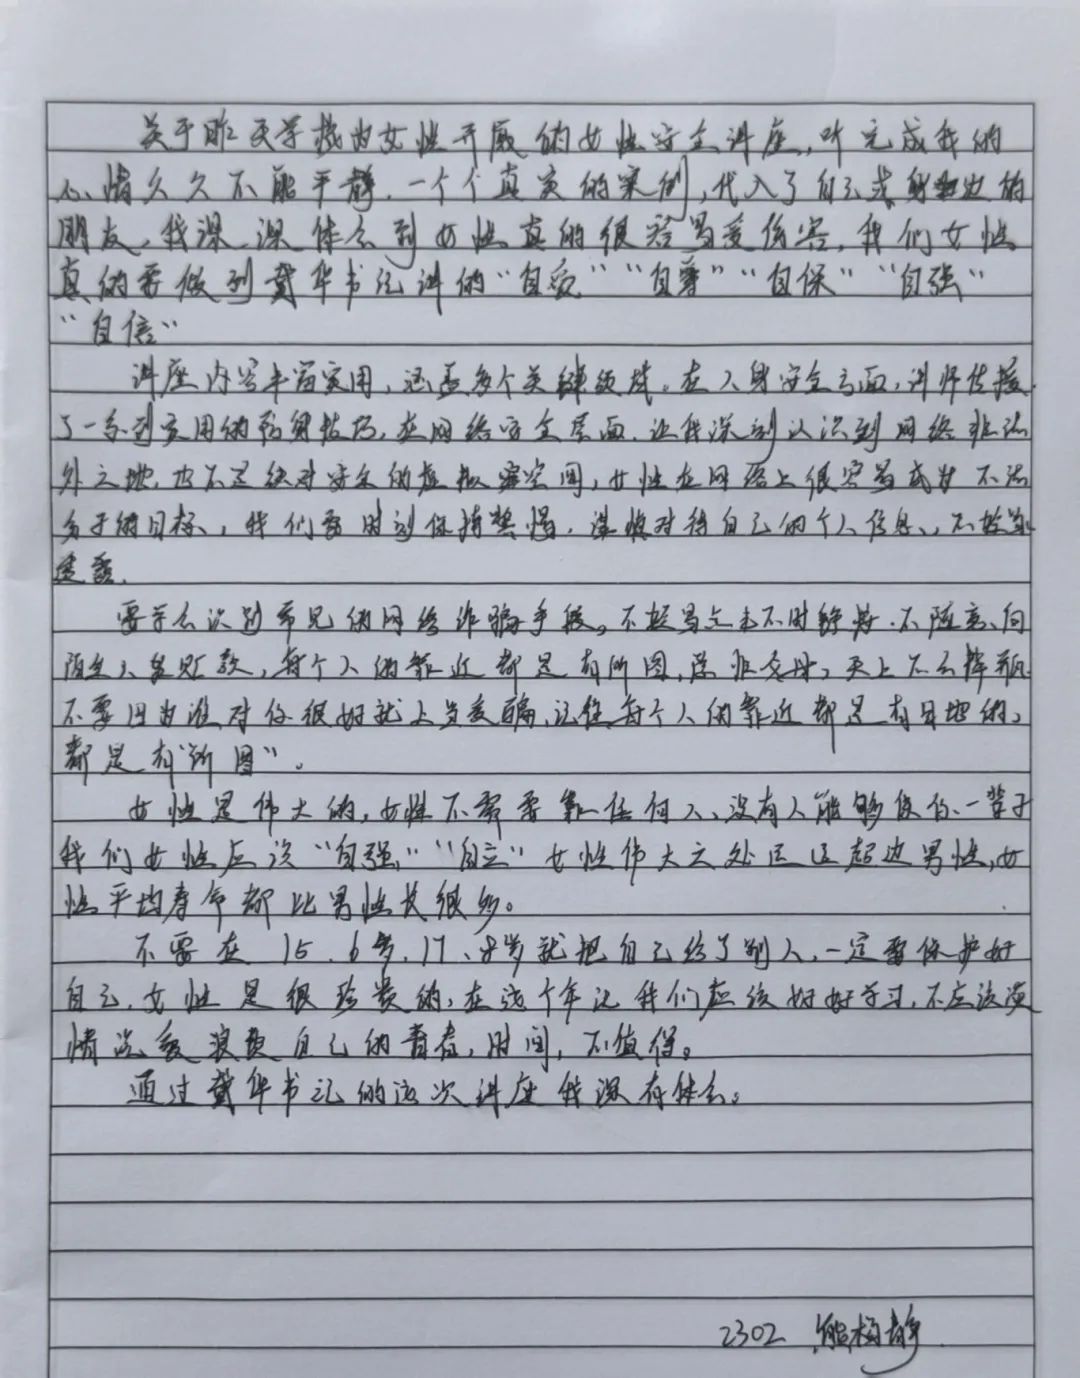 关于昨天学校为女性开展的女性安全讲座，听完成我的
心情久久不能平静．一个个真实的案例，代入了自己或身边的
朋友，我深深体会到女性真的很容易受伤害，我们女性
真的要做到龚华书记讲的“自爱”“自尊”“自保”“自强”
“自信”
讲座内容丰富实用，涵盖多个关键领域。在人身安全方面，讲师传授
了一系列实用的防身技巧，在网络安全层面．让我深刻认识到网络非法
外之地，也不是绝对安全的虚拟空间，女性在网络上很容易成为不法
分子的目标，我们要时刻保持警惕．谨慎对待自己的个人信息、不轻易
透露．
要学会识别常见的网络诈骗手段。不轻易点击不明链接．不随意向
陌生人发贷款，每个人的靠近都是有所图，除非父母，天上不会掉馅
不要因为谁对你很好就上当受骗，记住每个人的靠近都是有目地的，
都是有“所图”。
女性是伟大的，女性不需要靠任何人、没有人能够使你一辈子
我们女性应该“自强”“自立”女性伟大之处远远超过男性，女
性平均寿命都比男性长很多。
不要在15．6岁．17、8岁就把自己给了别人，一定要保护好
自己．女性是很珍贵的，在这个年纪我们应该好好学习．不应该演
情况爱浪费自己的青春，时间，不值得。
通过龚华书记的这次讲座我深有体会。
2302 熊梅静